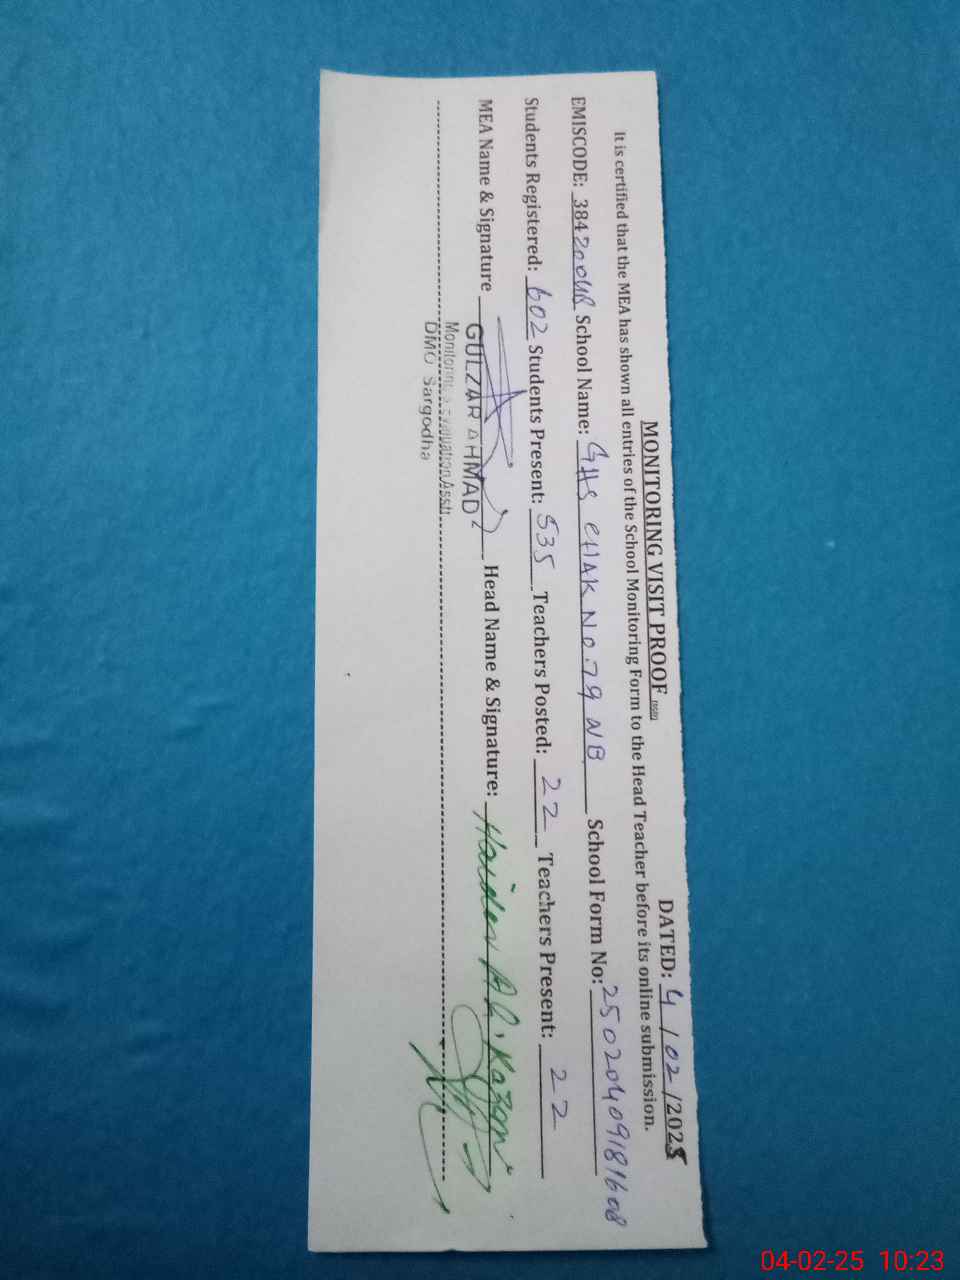 MONITORING VISIT PROOF
DATED: 4/02/2025
It is certified that the MEA has shown all entries of the School Monitoring Form to the Head Teacher before its online submission.
EMISCODE: 384200 School Name: GHS CHAK No.79 NB School Form No: 25020409181608
Students Registered: 602 Students Present: 535 Teachers Posted: 22 Teachers Present: 22
MEA Name & Signature Head Name & Signature: Haider Ali Kazmi
GULZAR AHMAD
Monitoring & Evaluation Asstt.
DMO Sargodha
04-02-25 10:23